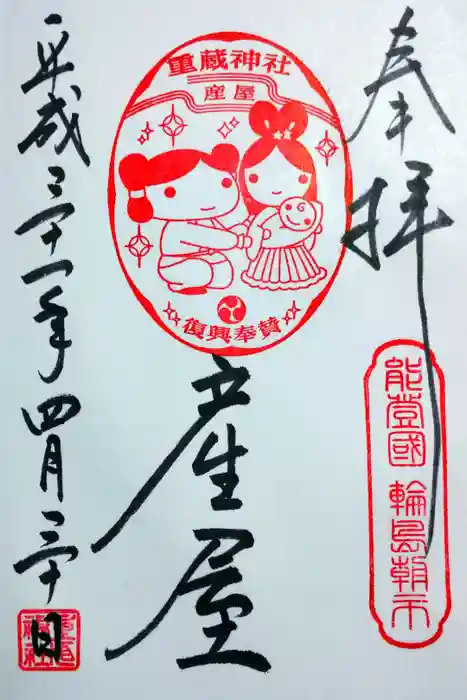 奉拝
能登國 輪島朝市
重蔵神社
産屋
復興奉賛
産屋
平成三十一年四月三十日